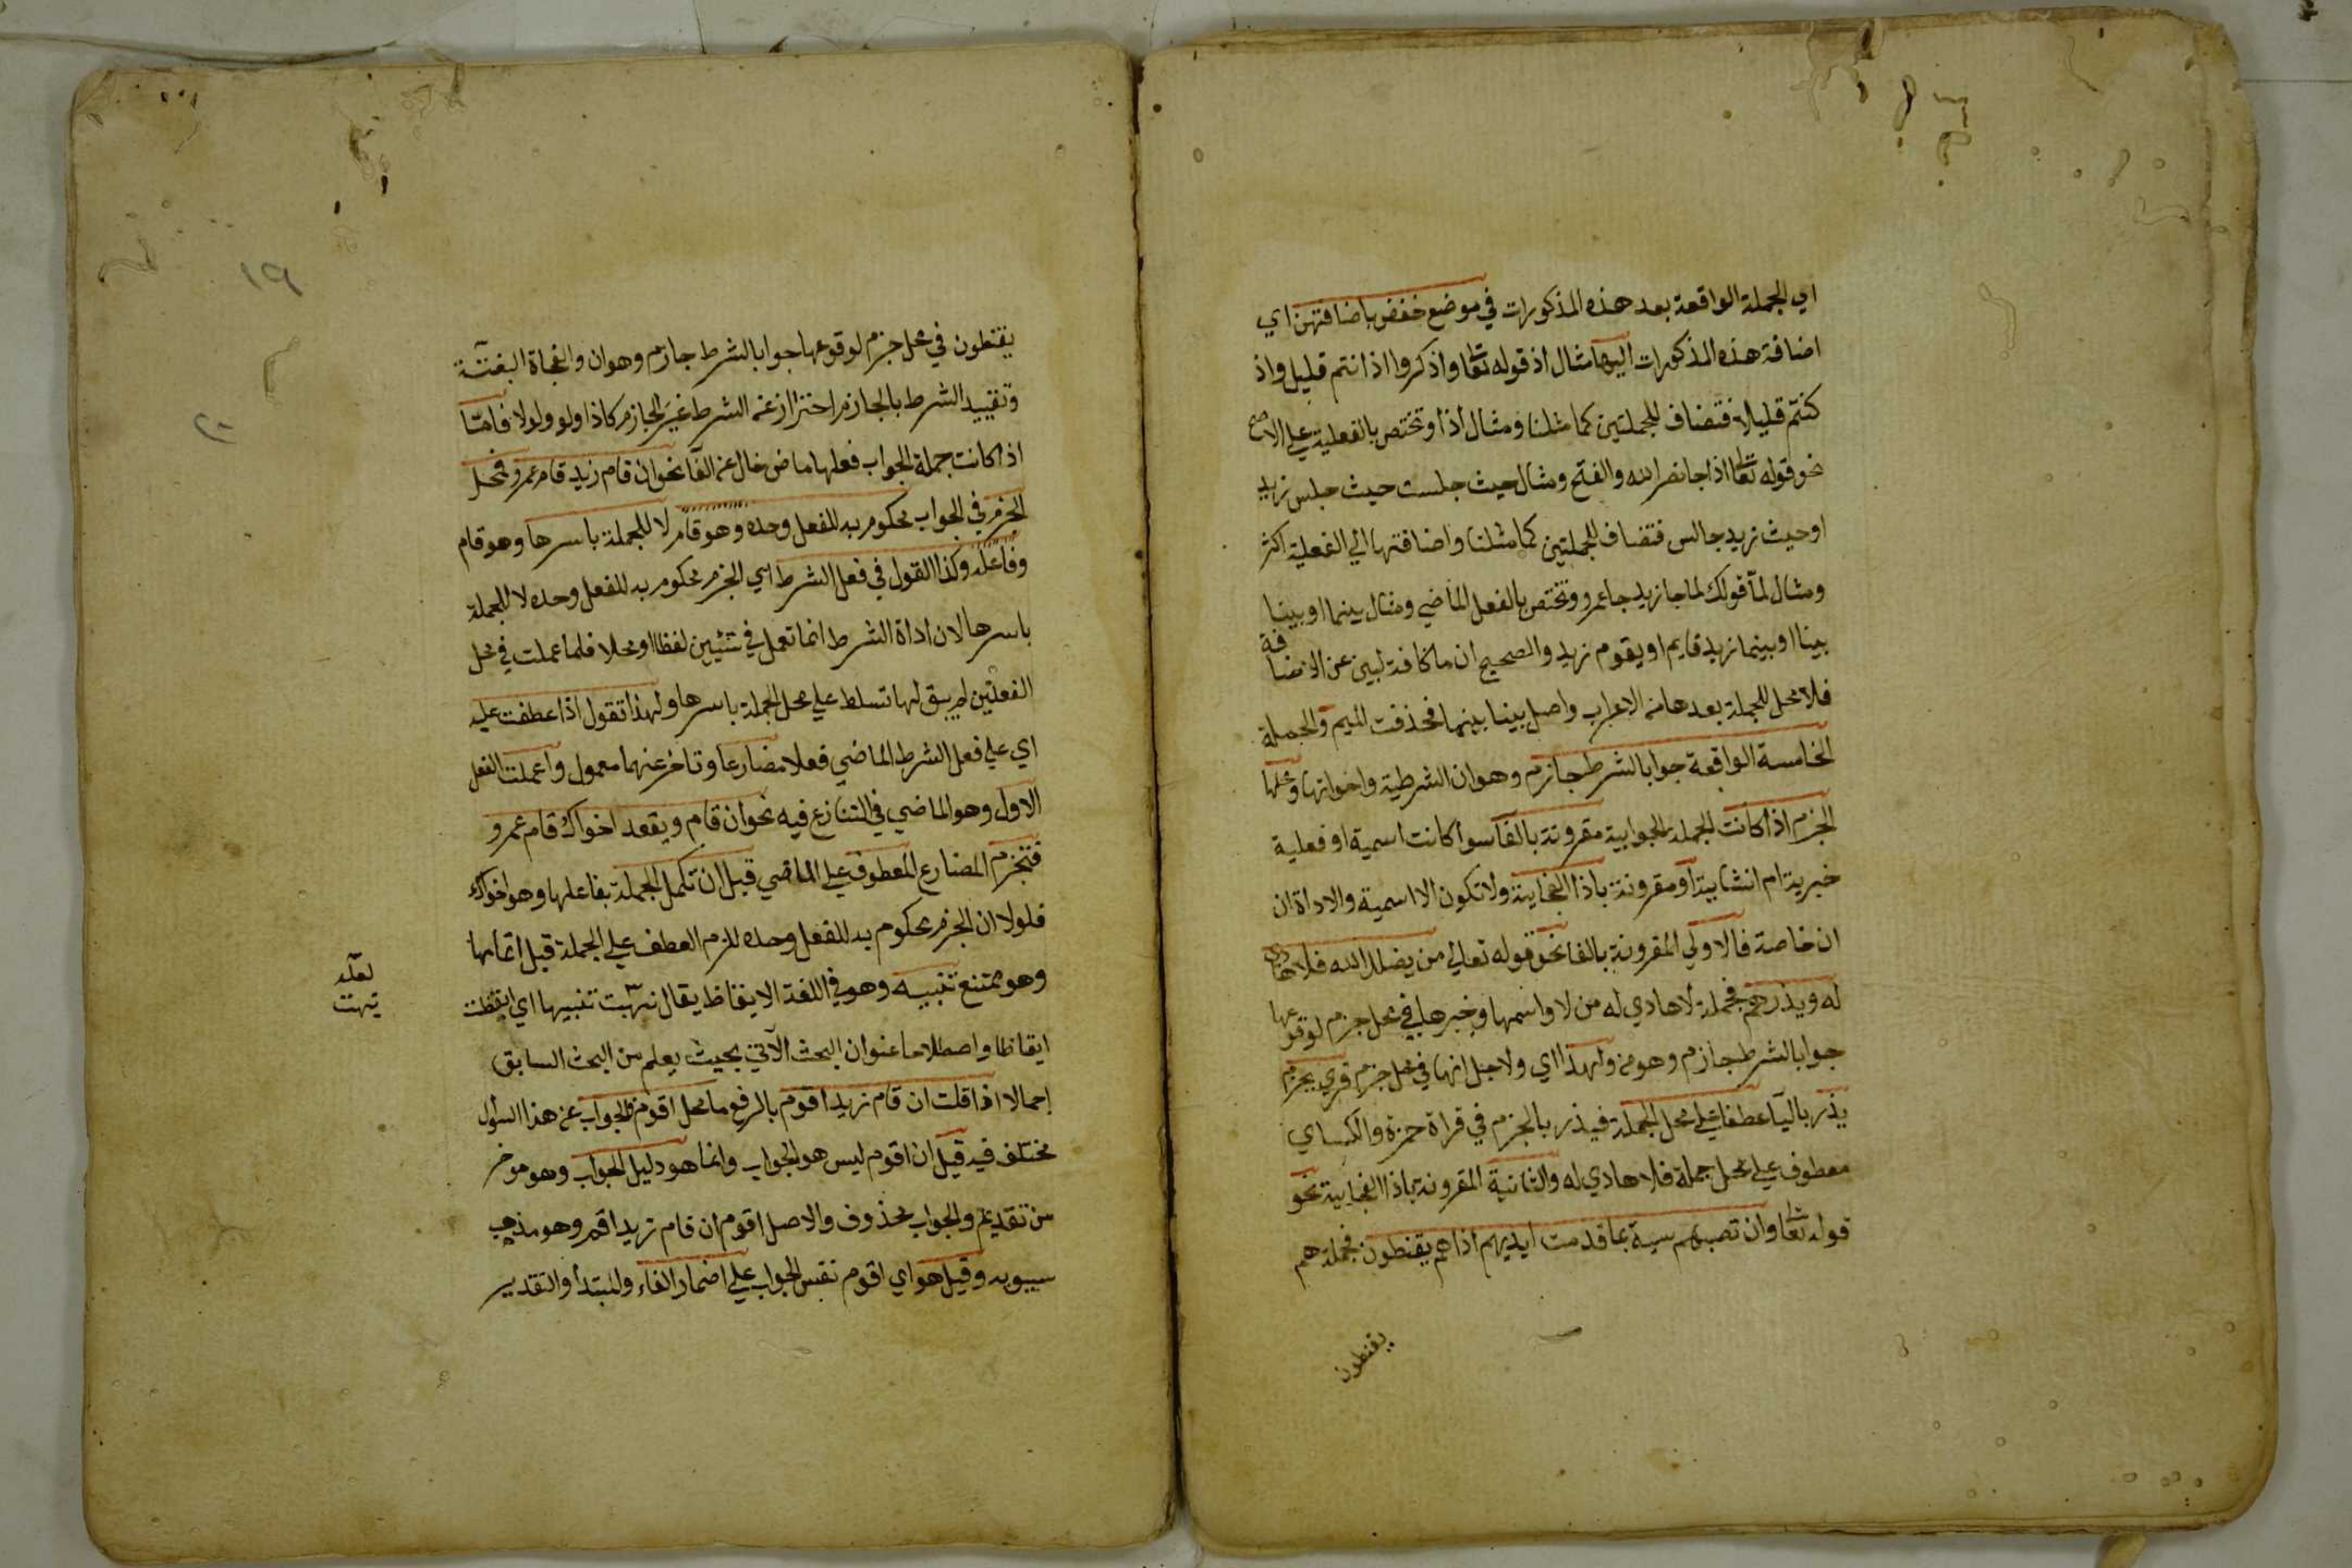 اي الجملة الواقعة بعد هذه المذكورات في موضع خفض باضافتهن اي
اضافة هذه المذكورات اليها مثال اذ قوله تعا واذكروا اذ انتم قليل واذ
كنتم قليلا فتضاف للجملتين كما مثلنا ومثال اذا وتختص بالفعلية علي الاصح
نحو قوله تعا اذا جا نصر الله والفتح ومثال حيث جلست حيث جلس زيد
او حيث زيد جالس فتضاف للجملتين كما مثلنا واضافتها الي الفعلية اكثر
ومثال لما قولك لما جا زيد جا عمرو وتختص بالفعل الماضي ومثال بينما او بينا
بينا او بينما زيد قايم او يقوم زيد والصحيح ان ما كافة لبين عن الاضافة
فلا محل للجملة بعدها من الاعراب واصل بينا بينما فحذفت الميم والجملة
الخامسة الواقعة جوابا لشرط جازم وهو ان الشرطية واخواتها ومحلها
الجزم اذا كانت الجملة الجوابية مقرونة بالفآ سوا كانت اسمية او فعلية
خبرية ام انشاية او مقرونة باذا الفجاية ولا تكون الا اسمية والاداة ان
ان خاصة فالاولي المقرونة بالفا نحو قوله تعالي من يضلل الله فلا هادي
له ويذرهم فجملة لا هادي له من لا واسمها وخبرها في محل جزم لوقوعها
جوابا لشرط جازم وهو من ولهذا اي ولاجل انها في محل جزم قري بجزم
يذر باليآ عطفا علي محل الجملة فيذر بالجزم في قراة حمزة والكساي
معطوف علي محل جملة فلا هادي له والثانية المقرونة باذا الفجايية نحو
قوله تعا وان تصبهم سية بما قدمت ايديهم اذا هم يقنطون فجملة هم
يقنطون
١٩
٢٠
يقنطون في محل جزم لوقوعها جوابا لشرط جازم وهو ان والفجاة البغتة
وتقييد الشرط بالجازم احترازا عن الشرط غير الجازم كاذا ولو ولولا فامّا
اذا كانت جملة الجواب فعلها ماض خال عن الفآ نحو ان قام زيد قام عمرو فمحل
الجزم في الجواب محكوم به للفعل وحده وهو قام لا للجملة باسرها وهو قام
وفاعله وكذا القول في فعل الشرط اي الجزم محكوم به للفعل وحده لا للجملة
باسرها لان اداة الشرط انما تعمل في شئيين لفظا او محلا فلما عملت في محل
الفعلين لم يبق لها تسلط علي محل الجملة باسرها ولهذا تقول اذا عطفت عليه
اي علي فعل الشرط الماضي فعلا مضارعا وتاخر عنهما معمول واعملت الفعل
الاول وهو الماضي في المتنازع فيه نحو ان قام ويقعد اخواك قام عمرو
فتجزم المضارع المعطوف علي الماضي قبل ان تكمل الجملة بفاعلها وهو اخواك
فلولا ان الجزم محكوم به للفعل وحده للزم العطف علي الجملة قبل اتمامها
وهو ممتنع تنبيه وهو في اللغة الايقاظ يقال نبهت تنبيها اي ايقظت
لعله
نبهت
ايقاظا واصطلاحا عنوان البحث الآتي بحيث يعلم من البحث السابق
اجمالا اذا قلت ان قام زيد اقوم بالرفع ما محل اقوم فالجواب عن هذا السؤل
مختلف فيه قيل ان اقوم ليس هو الجواب وانما هو دليل الجواب وهو موخر
من تقديم والجواب محذوف والاصل اقوم ان قام زيد اقم وهو مذهب
سيبويه وقيل هو اي اقوم نفس الجواب علي اضمار الفاء والمبتدأ والتقدير